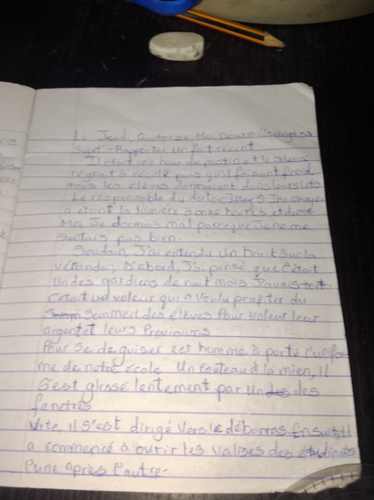 Le Jeudi Quatorze Mai Deux mil vingt six
Sujet - Rapporter un fait récent
Il était une heure du matin et le silence
régnait à l'école puis qu'il faisait froid
tous les élèves dormaient dans leurs lits
Le responsable du dortoir
a éteint la lumière à onze heures et demie
Moi Je dormais mal parceque Je ne me
sentais pas bien.
Soudain, J'ai entendu un bruit sur la
véranda; D'abord, J'ai pensé que C'était
Un des gardiens de nuit mais J'avais tort
C'était un voleur qui a voulu profiter du
Sommeil des élèves Pour voler leur
argent et leurs Provisions
Pour se déguiser cet homme à porté l'unifor
me de notre école Un couteau à la mien, Il
S'est glissé lentement par Un des
fenêtres
Vite, Il s'est dirigé Vers le débarras Ensuite Il
a commencé à ouvrir les valises des étudiants
L'une après L'autre-